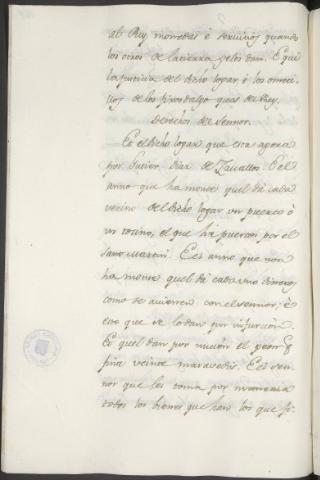 al Rey monedas é servicios quando
los otros de la tierra gelos dan. E que
la justicia del dicho logar é los omeci-
llos de los fijosdalgo que es del Rey.
Derechos del Sennor.
Es el dicho logar que era agora
por Gutier Diaz de Zavallos. E el
anno que ha monte quel dá cada
vecino del dicho logar un puerco ó
un tocino, el que ha puercos por el
Sant Martin. E el anno que non
ha monte quel dá cada uno dineros
como se avienen con el sennor, é
esto que se lo dan por infurción.
E quel dan por nución el peon
veinte maravedis. E el sen-
nor que les toma por mannería
todos los bienes que han los que fi-